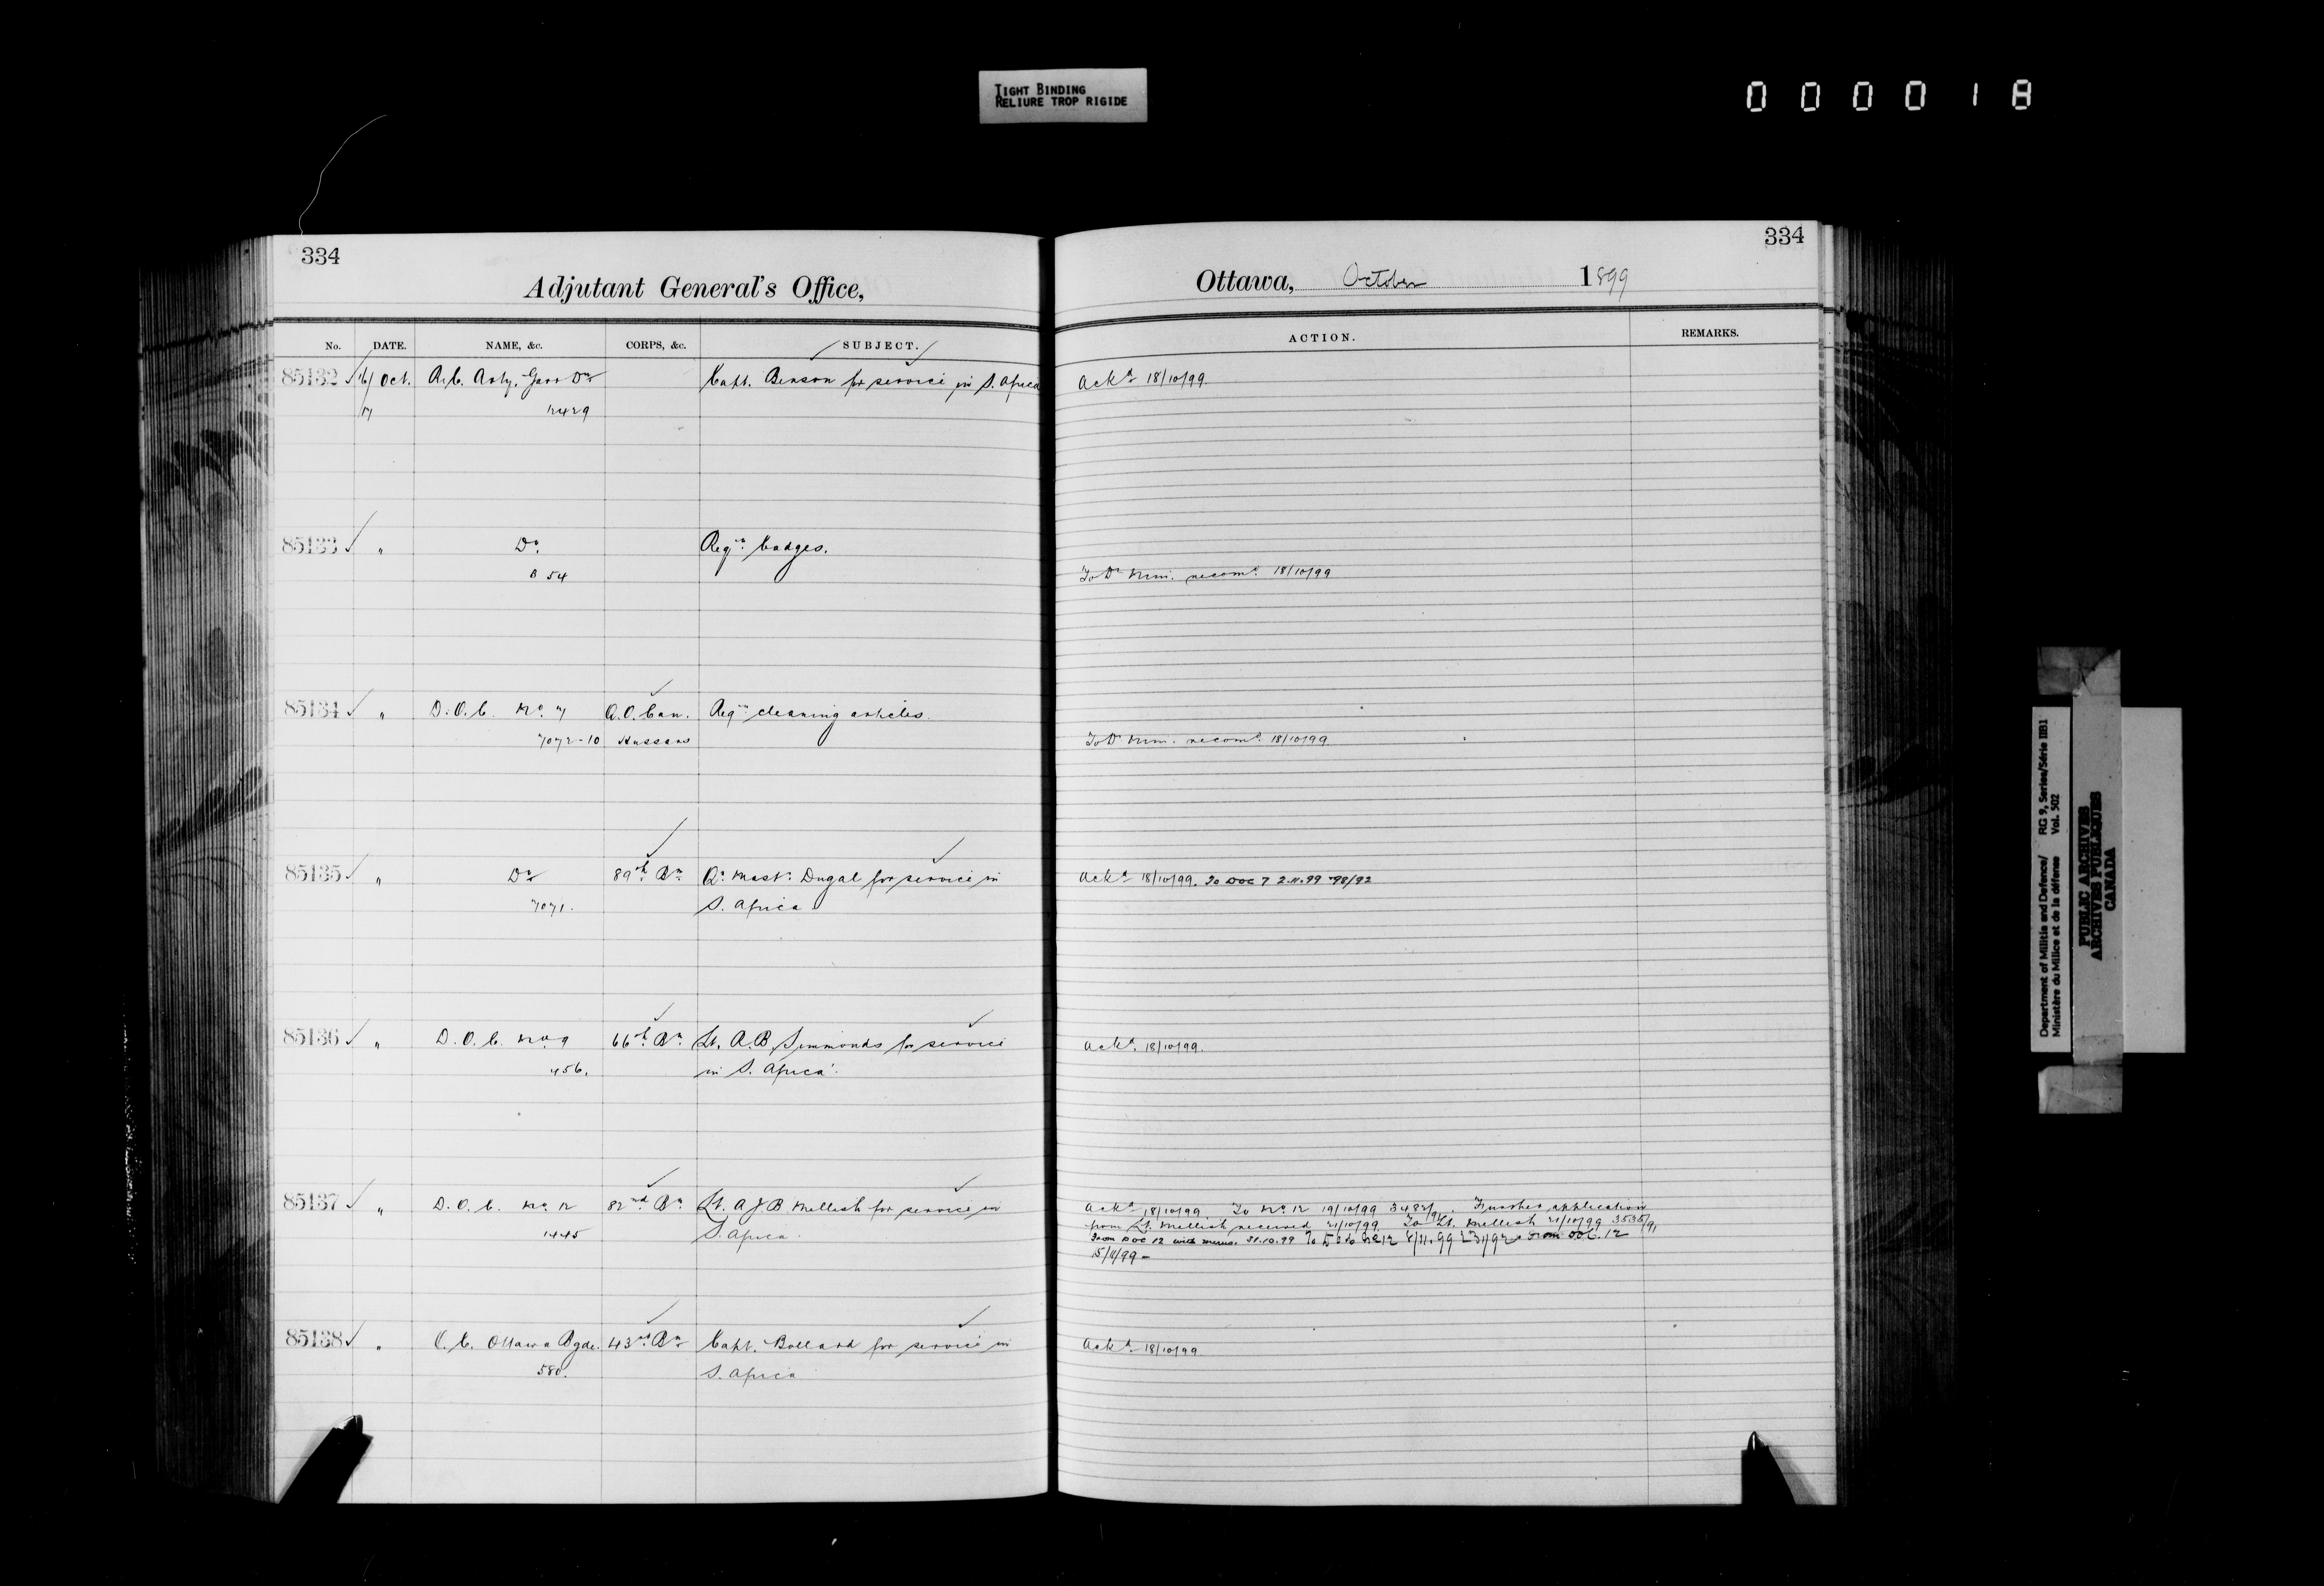 TIGHT BINDING
RELIURE TROP RIGIDE
000018
334
334
Adjutant General's Office,
Ottawa, October 1899
No. DATE. NAME, &c. CORPS, &c. SUBJECT. ACTION. REMARKS.
85132 16/ Oct. Capt. Benson for service in S. Africa Ackd 18/10/99.
17 1429
85133 " Do. Reqn. badges.
B 54 To Dr Mini. recomd. 18/10/99
85134 " D.O.C. No. 7 Q.O. Can. Reqn cleaning articles.
7072-10 Hussars To Dr Mini. recomd. 18/10/99.
85135 " Do 89th Bn. Qr. Mastr. Dugal for service in Ackd 18/10/99. To DOC 7 2.11.99 98/92
7071. S. Africa
85136 " D.O.C. No. 9 66th Bn. Lt. A.B. Simmonds for service Ackd. 18/10/99.
456. in S. Africa.
85137 " D.O.C. No. 12 82nd Bn Lt. A J B Mellish for service in Ackd 18/10/99. To No. 12 19/10/99 3482/91. Further application
1445 S. Africa. from Lt. Mellish received 21/10/99 To Lt. Mellish 21/10/99 3535/91
From DOC 12 with memo. 31.10.99 To No 12 8/11.99 from DOC. 12
15/11/99 -
85138 " O.C. Ottawa Bgde. 43rd Bn Capt. Bollard for service in Ackd. 18/10/99.
580. S. Africa
Department of Militia and Defence/ RG 9, Series/Série IIB1
Ministère du Milice et de la défense Vol. 502
PUBLIC ARCHIVES
ARCHIVES PUBLIQUES
CANADA